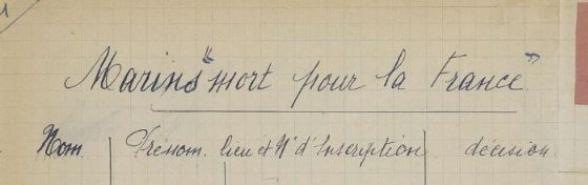 Marins "mort pour la France"
Nom. Prénom. lieu et N° d'Inscription décision